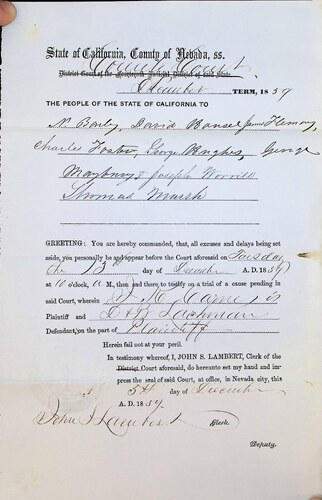 State of California, County of Nevada, ss.
County Court
District Court of the Fourteenth Judicial District of said State.
December TERM, 1859
THE PEOPLE OF THE STATE OF CALIFORNIA TO
N. David James Fleming,
Charles Foster, George Hughes, George
Maybury & Joseph Worrill
Thomas Marsh
GREETING: You are hereby commanded, that all excuses and delays being set
aside, you personally be and appear before the Court aforesaid on Tuesday
the 13th day of December A. D. 1859,
at 10 o'clock, A M., then and there to testify on a trial of a cause pending in
said Court, wherein is
Plaintiff and Lachman
Defendant, on the part of Plaintiff
Herein fail not at your peril.
In testimony whereof, I, JOHN S. LAMBERT, Clerk of the
District Court aforesaid, do hereunto set my hand and im-
press the seal of said Court, at office, in Nevada city, this
5th day of December
A. D. 1859.
John S Lambert Clerk.
Deputy.